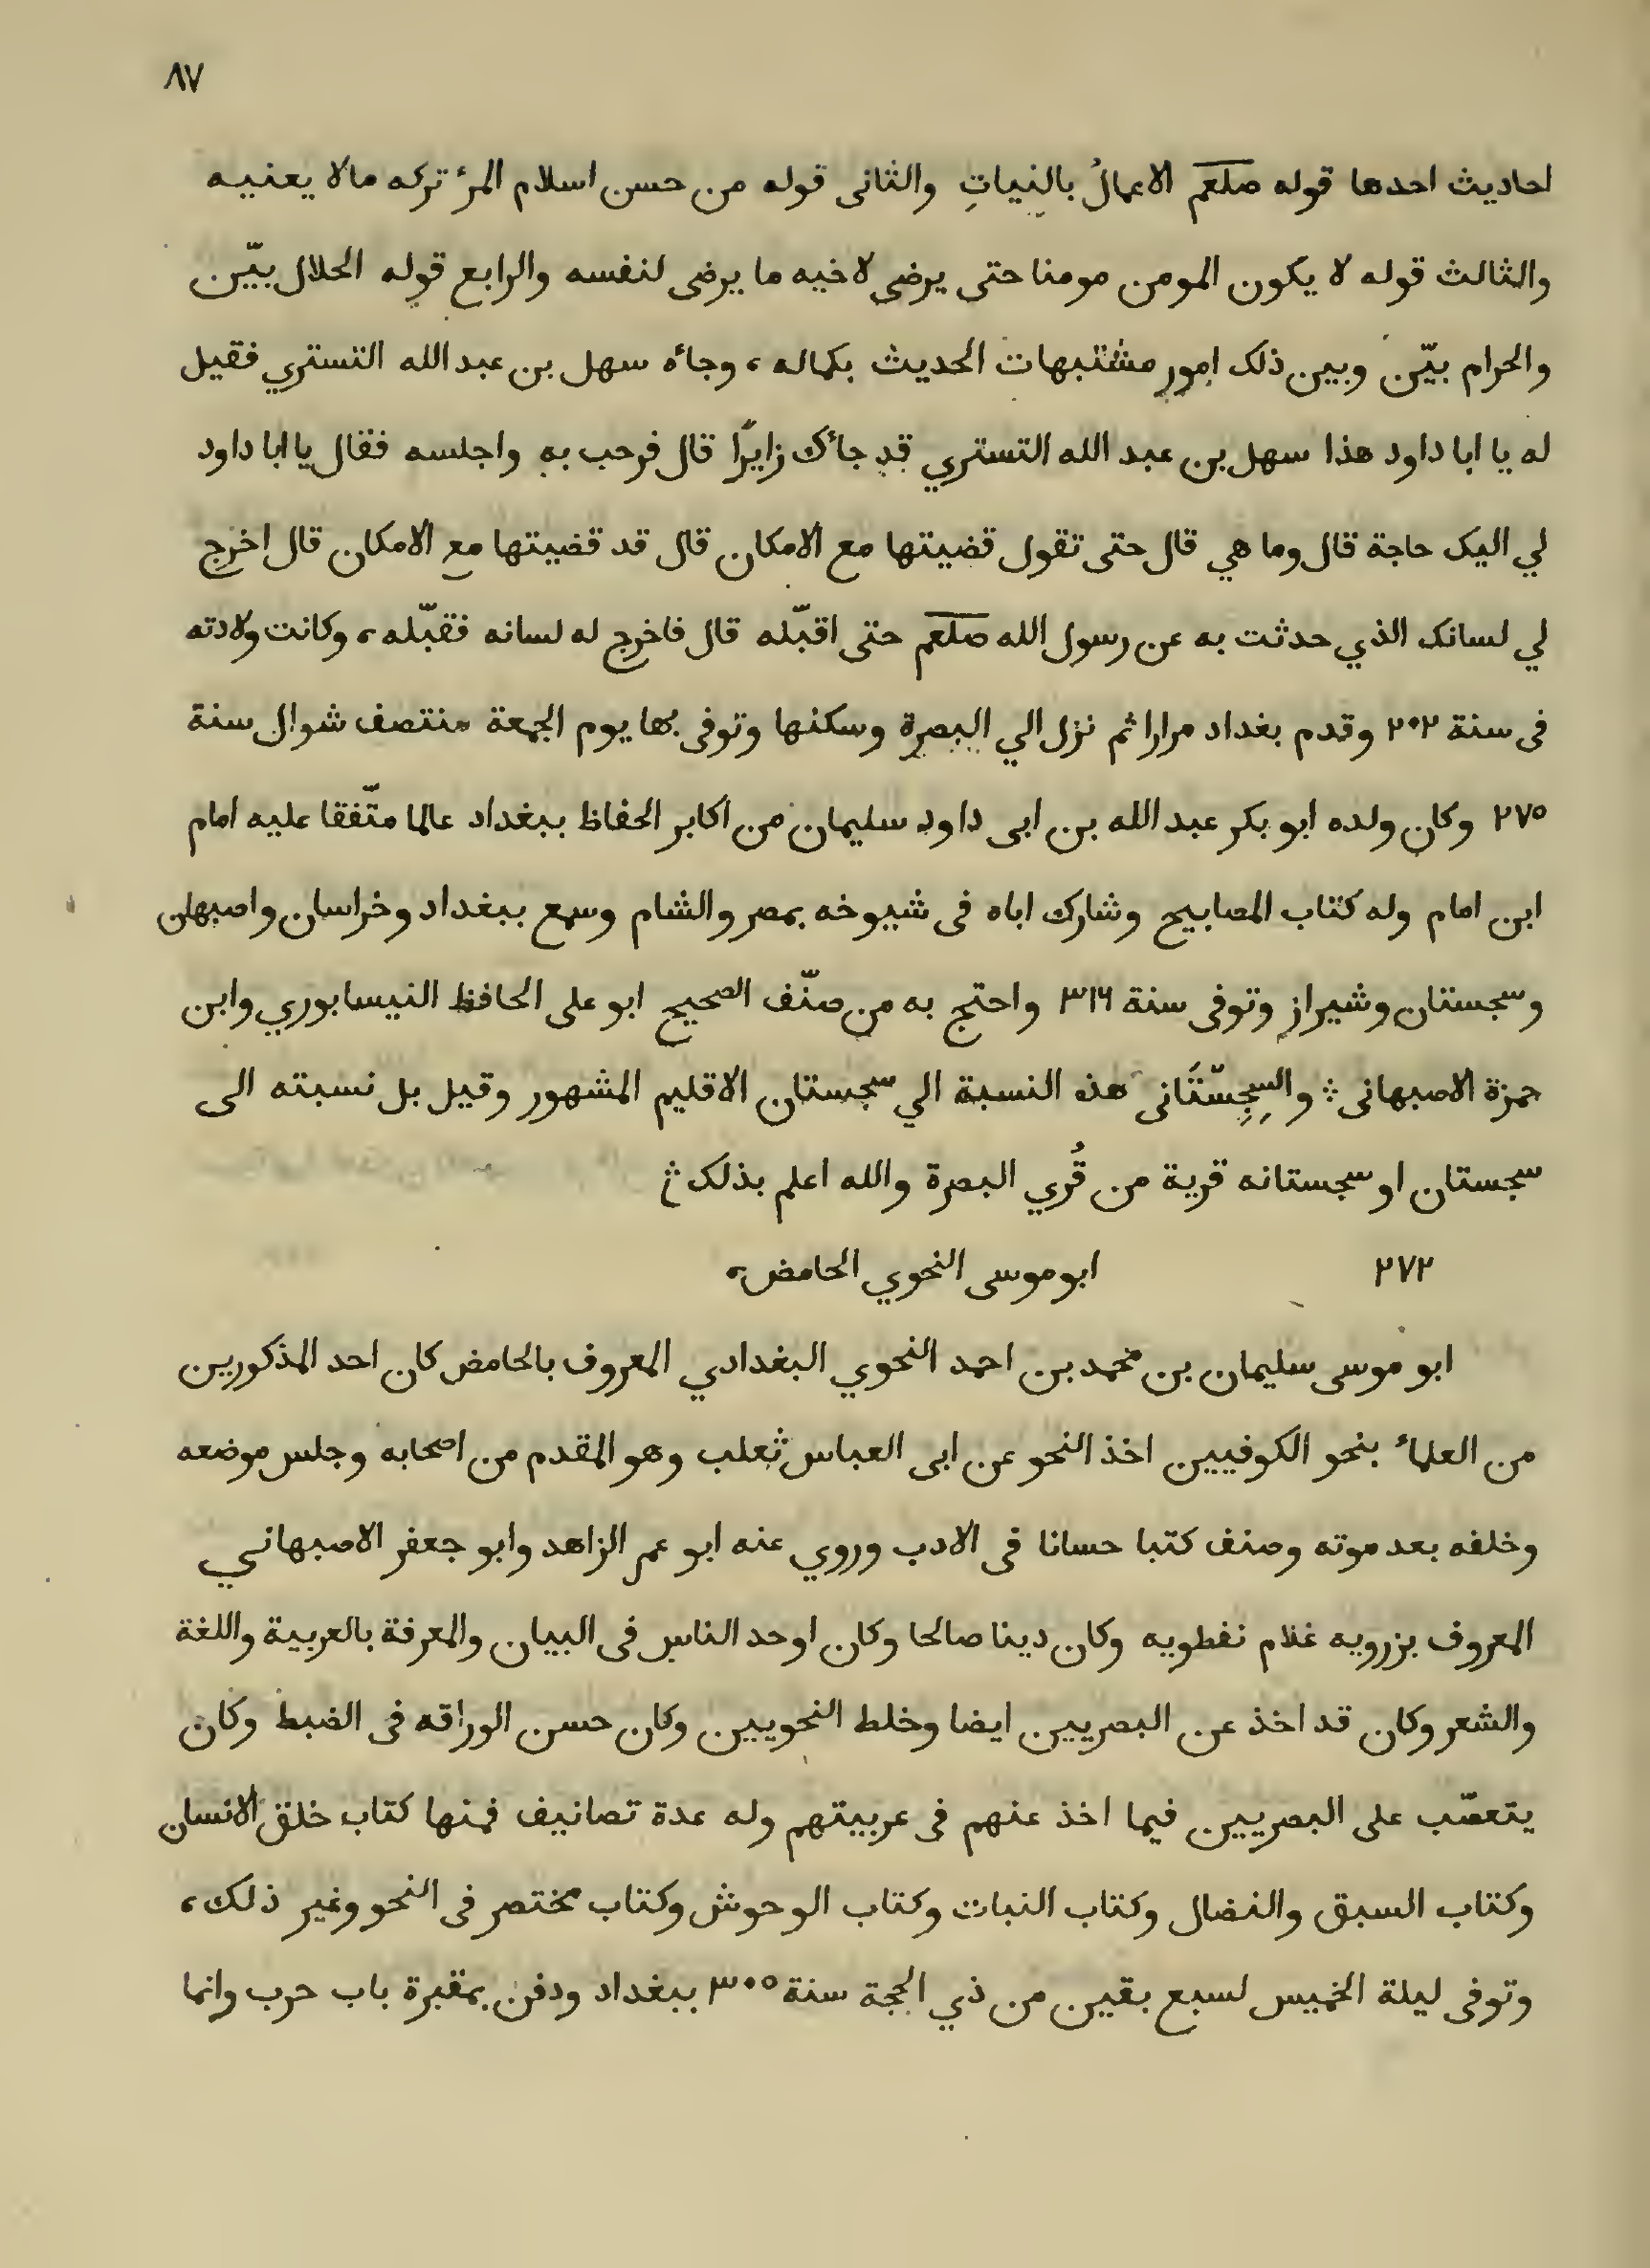 ٨٧
احاديث احدها قوله صلعم الاعمالُ بالنياتِ والثانى قوله من حسن اسلام المرء تركه مالا يعنيه
والثالث قوله لا يكون المومن مومنا حتى يرضى لاخيه ما يرضى لنفسه والرابع قوله الحلال بيّن
والحرام بيّن وبين ذلك امور مشتبهات الحديث بكماله، وجاه سهل بن عبد الله التستري فقيل
له يا ابا داود هذا سهل بن عبد الله التستري قد جاك زايرًا قال فرحب به واجلسه فقال يا ابا داود
لي اليك حاجة قال وما هي قال حتى تقول قضيتها مع الامكان قال قد قضيتها مع الامكان قال اخرج
لي لسانك الذي حدثت به عن رسول الله صلعم حتى اقبّله قال فاخرج له لسانه فقبّله، وكانت ولادته
فى سنة ٢٠٢ وقدم بغداد مرارا ثم نزل الي البصرة وسكنها وتوفى بها يوم الجمعة منتصف شوال سنة
٢٧٥ وكان ولده ابو بكر عبد الله بن ابى داود سليمان من اكابر الحفاظ ببغداد عالما متّفقا عليه امام
ابن امام وله كتاب المصابيح وشارك اباه فى شيوخه بمصر والشام وسمع ببغداد وخراسان واصبهان
وسجستان وشيراز وتوفى سنة ٣١٦ واحتج به من صنّف الصحيح ابو على الحافظ النيسابوري وابن
حمزة الاصبهانى ∴ والسِجِسْتَانى هذه النسبة الي سجستان الاقليم المشهور وقيل بل نسبته الى
سجستان او سجستانه قرية من قُري البصرة والله اعلم بذلك ∴
٢٧٢ ابو موسى النحوي الحامض،
ابو موسى سليمان بن محمد بن احمد النحوي البغدادي المعروف بالحامض كان احد المذكورين
من العلماء بنحو الكوفيين اخذ النحو عن ابى العباس ثعلب وهو المقدم من اصحابه وجلس موضعه
وخلفه بعد موته وصنف كتبا حسانا فى الادب وروي عنه ابو عمر الزاهد وابو جعفر الاصبهاني
المعروف بزرويه غلام نفطويه وكان دينا صالحا وكان اوحد الناس فى البيان والمعرفة بالعربية واللغة
والشعر وكان قد اخذ عن البصريين ايضا وخلط النحويين وكان حسن الوراقه فى الضبط وكان
يتعصّب على البصريين فيما اخذ عنهم فى عربيتهم وله عدة تصانيف فمنها كتاب خلق الانسان
وكتاب السبق والنضال وكتاب النبات وكتاب الوحوش وكتاب مختصر فى النحو وغير ذلك،
وتوفى ليلة الخميس لسبع بقين من ذي الحجة سنة ٣٠٥ ببغداد ودفن بمقبرة باب حرب وانما